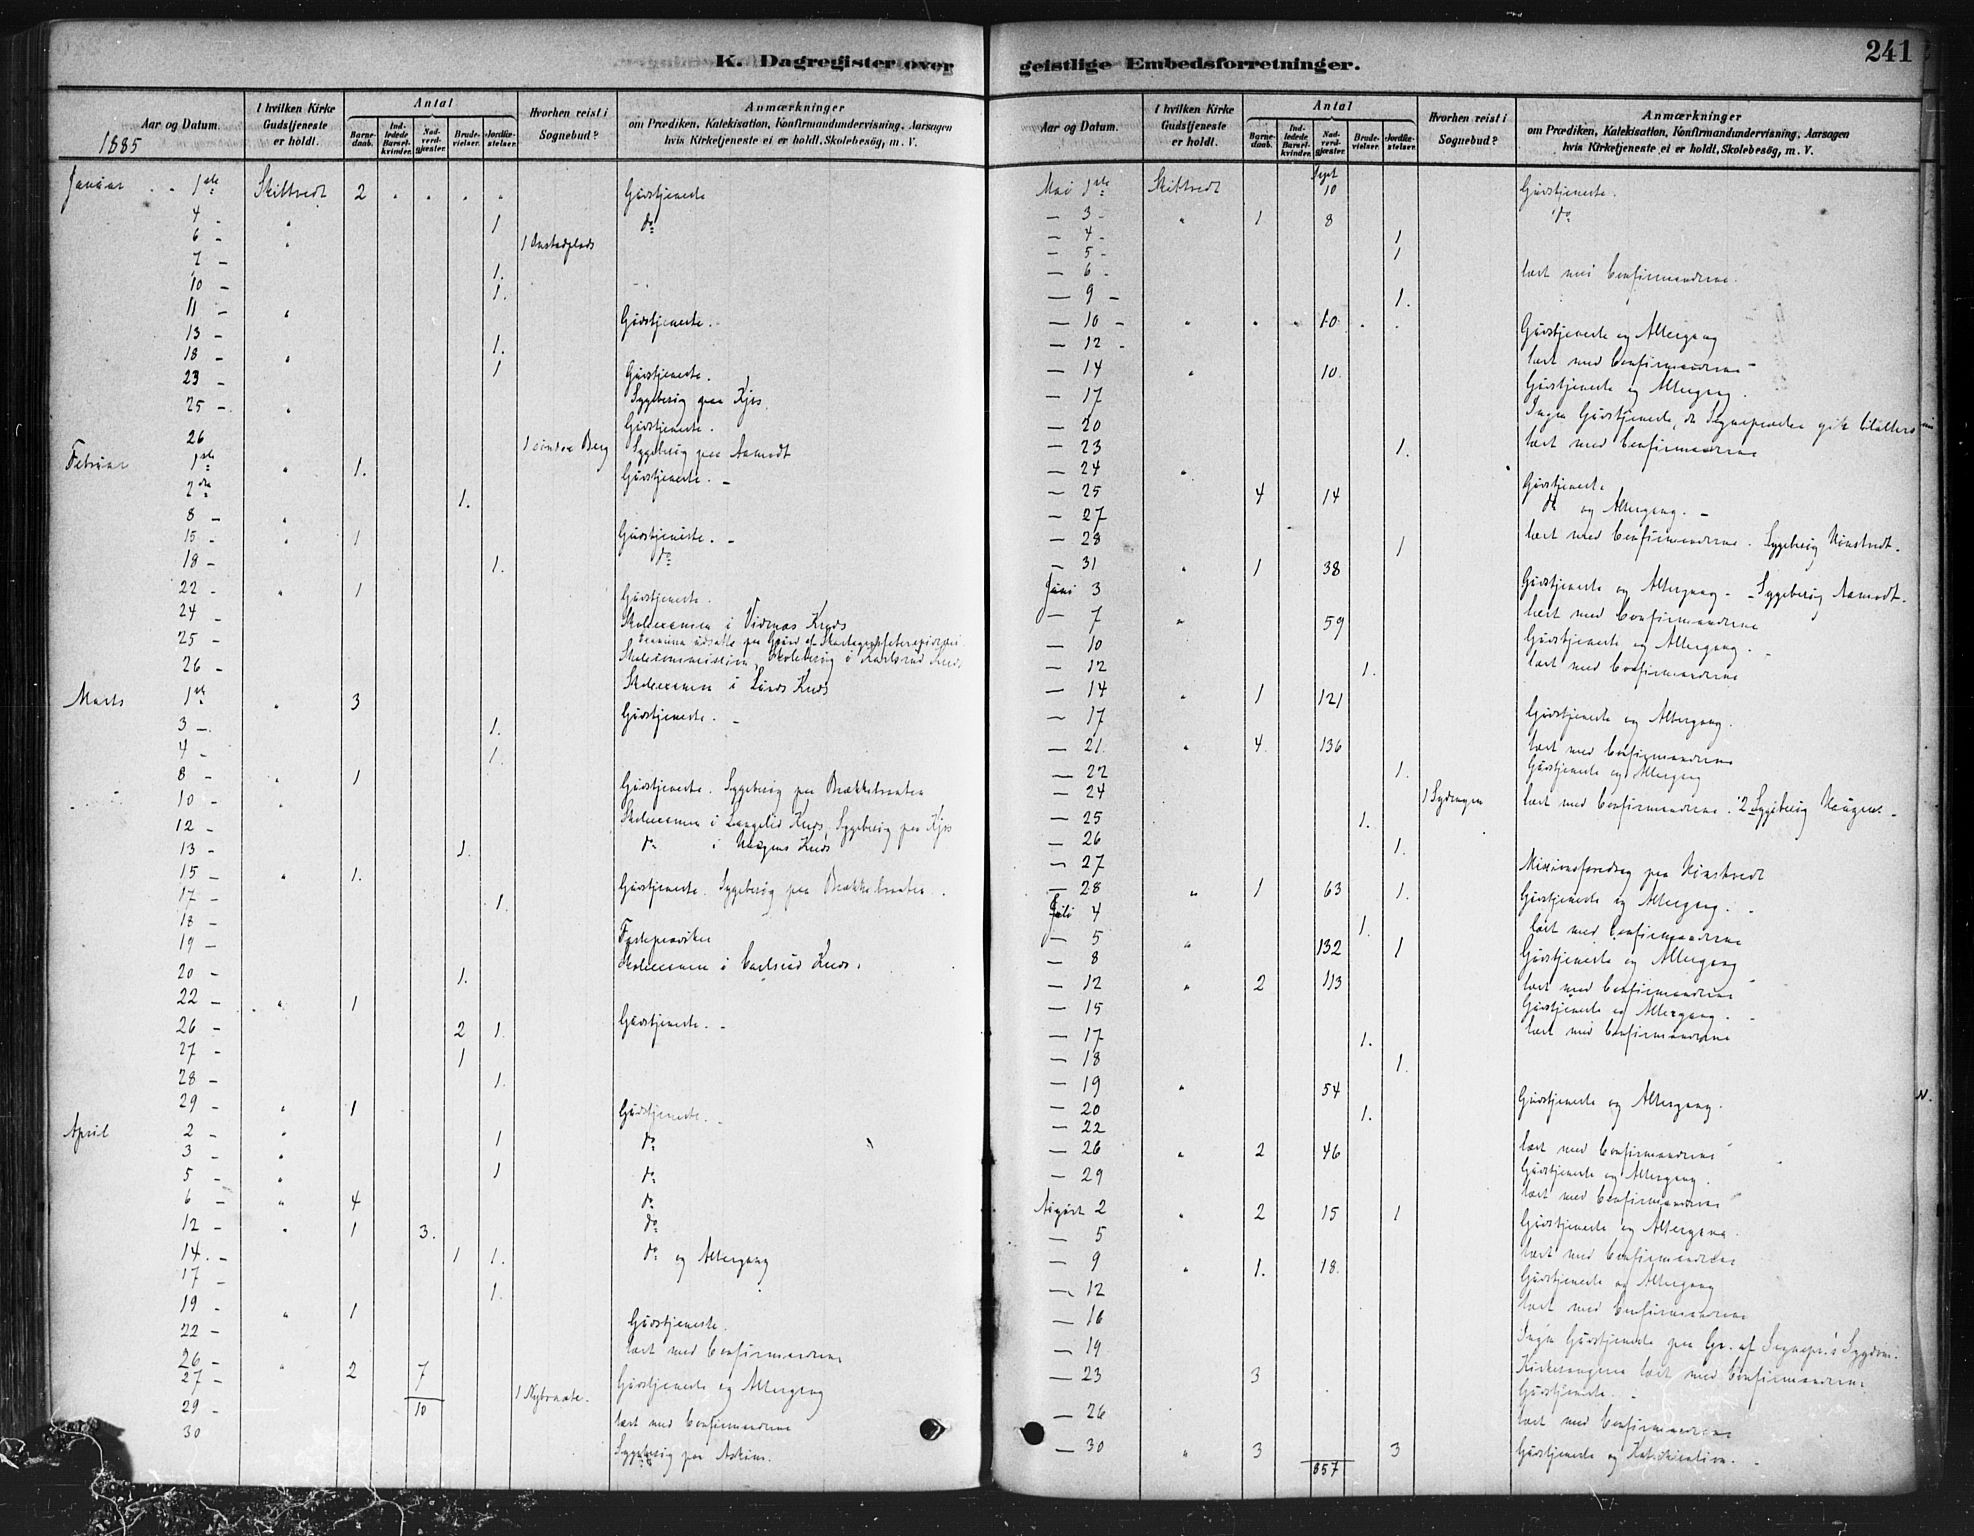 K. Dagregister over geistlige Embedsforretninger. 241
Aar og Datum. I hvilken Kirke Gudstjeneste er holdt. Antal Barnedaab. Indledede Barselkvinder. Nadverdgjæster. Brudevielser. Jordfæstelser. Hvorhen reist i Sognebud? Anmærkninger om Prædiken, Katekisation, Konfirmandundervisning, Aarsagen hvis Kirketjeneste ei er holdt, Skolebesög, m. V.
1885
Januar 1ste Skiptvedt 2 Gudstjeneste
4 - " 1 do
6 - " 1 Onstadplads
7 - 1.
10 - 1.
11 - " Gudstjeneste.
13 - 1.
18 - " 1 Gudstjeneste.
23 - Sygebesøg paa Kjos.
25 - " Gudstjeneste.
26 1 søndre Berg Sygebesøg paa Aamodt
Februar 1ste " 1. Gudstjeneste. -
2den 1.
8 - " Gudstjeneste. -
15 - " 1 do
18 - 1.
22 - " 1 Gudstjeneste.
24 - Skoleexamen i Vidnæs Kreds
25 -
Skolekommission, Skolebesøg i Karlsrud Kreds
26 - Skoleexamen i Lunds Kreds
Marts 1ste " 3 Gudstjeneste. -
3 - 1.
4 - 1.
8 - " 1 Gudstjeneste. Sygebesøg paa Brækkebraaten
10 - " Skoleexamen i Langelid Kreds, Sygebesøg paa Kjos
12 - do i Haugens Kreds
13 - 1.
15 - " 1. Gudstjeneste. Sygebesøg paa Brækkebraaten.
17 - 1.
18 - Fasteprædiken
19 - Skoleexamen i Carlsrud Kreds.
20 - 1.
22 - " 1 Gudstjeneste. -
26 - 2 1.
27 - 1
28 - 1.
29 - " 1 Gudstjeneste. -
April 2 - " 1 do
3 - " do
5 - " 1 do
6 - " 4 do
12 - " 1 3. do og Altergang
14. - 1 1.
17 - 1.
19 - " 1 Gudstjeneste.
22 - læst med Confirmanderne
26 - " 2 7 Gudstjeneste og Altergang
27 - 10 1 Nybraate.
29 - læst med Confirmanderne
30 Sygebesøg paa Askim.
Aar og Datum. I hvilken Kirke Gudstjeneste er holdt. Antal Barnedaab. Indledede Barselkvinder. Nadverdgjæster. Brudevielser. Jordfæstelser. Hvorhen reist i Sognebud? Anmærkninger om Prædiken, Katekisation, Konfirmandundervisning, Aarsagen hvis Kirketjeneste ei er holdt, Skolebesøg, m. V.
Mai 1ste Skiptvedt 10 Gudstjeneste.
— 3 - " 1 8 do
— 4 - 1
— 5 - 1
— 6 - læst med Confirmanderne.
— 9 - 1.
— 10 - " 10 Gudstjeneste og Altergang
— 12 - læst med Confirmanderne -
— 14 " 10. Gudstjeneste og Altergang.
— 17 Ingen Gudstjeneste, da Sognepresten gik tilalters
— 20 læst med Confirmanderne
— 23 1.
— 24 " Gudstjeneste.
— 25 4 14 do og Altergang. -
— 27 læst med Confirmanderne. Sygebesøg
— 28 1
— 31 " 1 38 Gudstjeneste og Altergang. - Sygebesøg Aamodt.
Juni 3 læst med Confirmanderne
— 7 " 59 Gudstjeneste og Altergang. -
— 10 læst med Confirmanderne
— 12 1.
— 14 " 1 121 Gudstjeneste og Altergang.
— 17 læst med Confirmanderne
— 21. " 4 136 Gudstjeneste og Altergang
— 22 1.
— 24 1 læst med Confirmanderne. 2 Sygebesøg Haugen. -
— 25 1.
— 26 1.
— 27 Missionsforedrag paa
— 28 " 1 63 1. Gudstjeneste og Altergang. -
Juli 4 1. læst med Confirmanderne
— 5 " 132 1 Gudstjeneste og Altergang
— 8 læst med Confirmanderne
— 12 " 2 113 Gudstjeneste og Altergang. -
— 15 læst med Confirmanderne
— 17 1.
— 18 1.
— 19 " 54 Gudstjeneste og Altergang.
— 20 1.
— 22 læst med Confirmanderne
— 26 " 2 46 Gudstjeneste og Altergang.
— 29 læst med Confirmanderne
August 2 " 2 15 1 Gudstjeneste og Altergang.
— 5 læst med Confirmanderne
— 9 " 1. 18. Gudstjeneste og Altergang
— 12 læst med Confirmanderne
— 16 Ingen Gudstjeneste paa Gr. af Sognepr.s Sygdom.
— 19 Kirkesangeren læst med Confirmanderne
— 23 3 Gudstjeneste. -
— 26 læst med Confirmanderne
— 30 " 3 3 Gudstjeneste og Katekisation. -
857